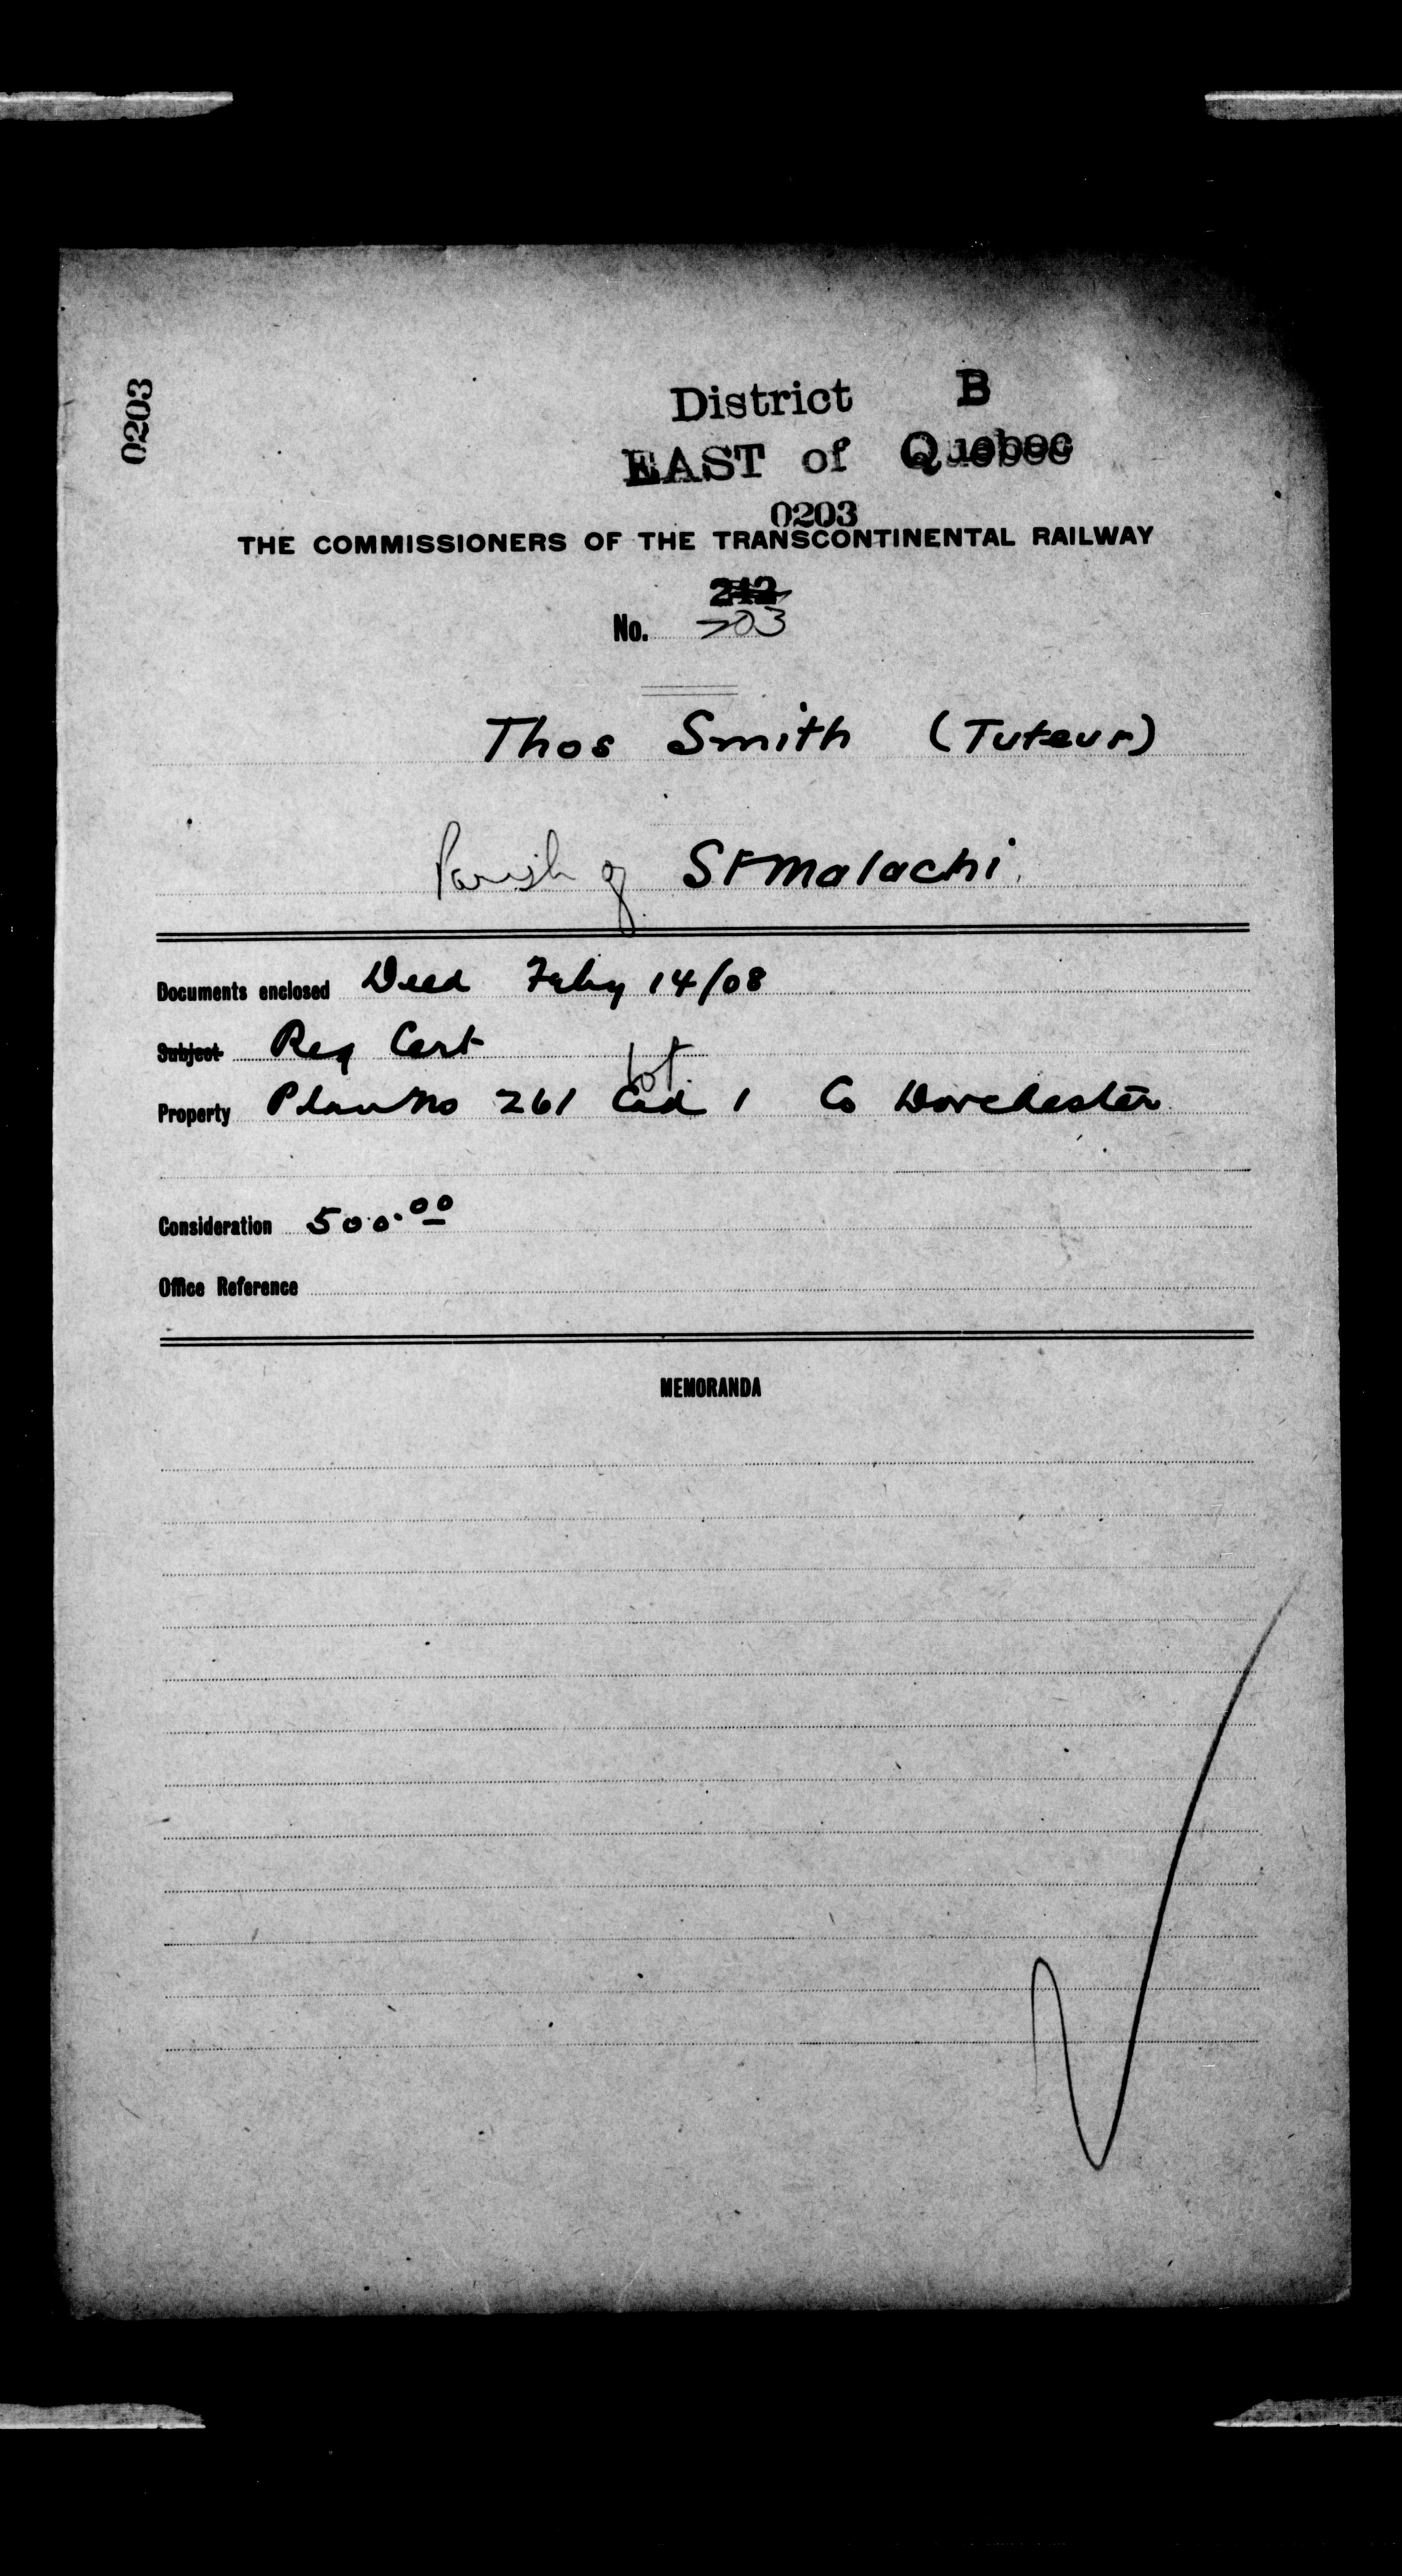 0203
District B
EAST of Quebec
0203
THE COMMISSIONERS OF THE TRANSCONTINENTAL RAILWAY
242
No. 203
Thos Smith (Tuteur)
Parish of St Malachi
Documents enclosed Deed Feby 14/08
Subject Reg Cert
lot
Property Plan No 261 Cad 1 Co Dorchester
Consideration 500.00
Office Reference
MEMORANDA